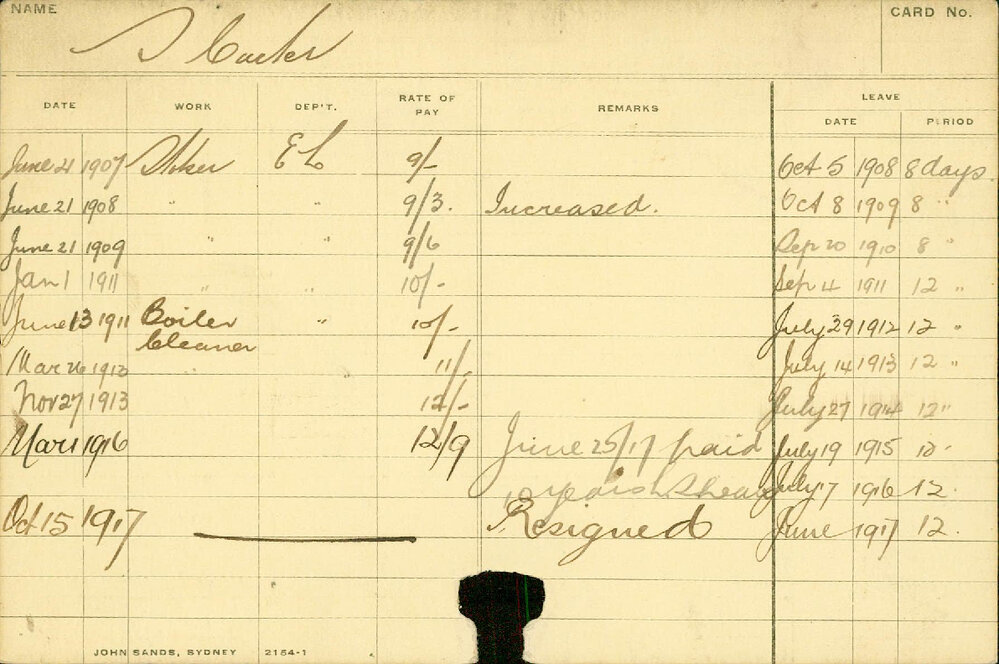 NAME CARD No.
Carter
DATE WORK DEP'T. RATE OF PAY REMARKS LEAVE
DATE PERIOD
June 21 1907 Stoker E L 9/- Oct 5 1908 8 days.
June 21 1908 " " 9/3. Increased. Oct 8 1909 8 "
June 21 1909 " " 9/6 Sep 20 1910 8 "
Jan 1 1911 " " 10/- Sep 4 1911 12 "
June 13 1911 Boiler Cleaner " 10/- July 29 1912 12 "
Mar 26 1913 11/- July 14 1913 12 "
Nov 27 1913 12/- July 27 1914 12 "
Mar 1 1916 12/9 June 25/17 paid July 19 1915 12 "
10 years July 7 1916 12.
Oct 15 1917 Resigned June 1917 12.
JOHN SANDS, SYDNEY 2154-1